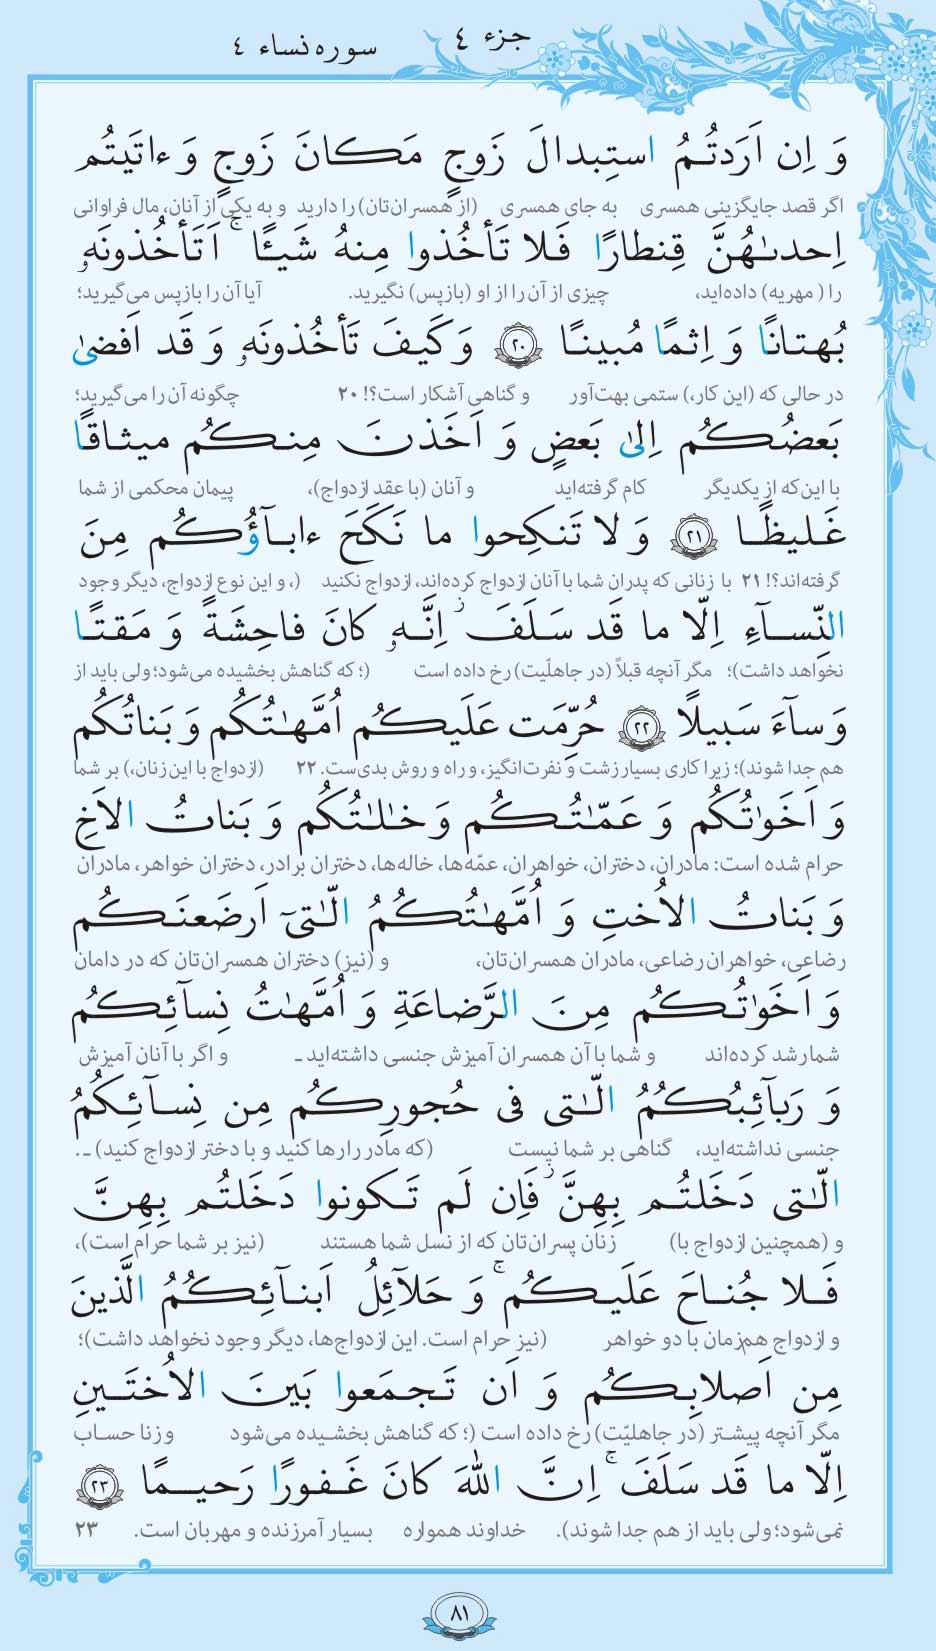 جزء ٤
سوره نساء ٤
وَ اِن اَرَدتُمُ استِبدالَ زَوجٍ مَكانَ زَوجٍ وَ ءاتَيتُم
اگر قصد جایگزینی همسری به جای همسری (از همسران‌تان) را دارید و به یکی از آنان، مال فراوانی
اِحدىٰهُنَّ قِنطارًا فَلا تَأخُذوا مِنهُ شَيـًٔا ۚ اَتَأخُذونَهۥ
را (مهریه) داده‌اید، چیزی از آن را از او (بازپس) نگیرید. آیا آن را بازپس می‌گیرید؛
بُهتانًا وَ اِثمًا مُبينًا ۲۰ وَ كَيفَ تَأخُذونَهۥ وَ قَد اَفضىٰ
در حالی که (این کار،) ستمی بهت‌آور و گناهی آشکار است؟! ۲۰ چگونه آن را می‌گیرید؛
بَعضُكُم اِلىٰ بَعضٍ وَ اَخَذنَ مِنكُم ميثاقًا
با این‌که از یکدیگر کام گرفته‌اید و آنان (با عقد ازدواج)، پیمان محکمی از شما
غَليظًا ۲۱ وَ لا تَنكِحوا ما نَكَحَ ءابآؤُكُم مِنَ
گرفته‌اند؟! ۲۱ با زنانی که پدران شما با آنان ازدواج کرده‌اند، ازدواج نکنید (، و این نوع ازدواج، دیگر وجود
النِّسآءِ اِلّا ما قَد سَلَفَ ۚ اِنَّهۥ كانَ فاحِشَةً وَ مَقتًا
نخواهد داشت)؛ مگر آنچه قبلاً (در جاهلیّت) رخ داده است (؛ که گناهش بخشیده می‌شود؛ ولی باید از
وَ سآءَ سَبيلًا ۲۲ حُرِّمَت عَلَيكُم اُمَّهٰتُكُم وَ بَناتُكُم
هم جدا شوند)؛ زیرا کاری بسیار زشت و نفرت‌انگیز، و راه و روش بدی‌ست. ۲۲ (ازدواج با این زنان،) بر شما
وَ اَخَوٰتُكُم وَ عَمّٰتُكُم وَ خٰلٰتُكُم وَ بَناتُ الاَخِ
حرام شده است: مادران، دختران، خواهران، عمّه‌ها، خاله‌ها، دختران برادر، دختران خواهر، مادران
وَ بَناتُ الاُختِ وَ اُمَّهٰتُكُمُ الّٰتىٓ اَرضَعنَكُم
رضاعی، خواهران رضاعی، مادران همسران‌تان، و (نیز) دختران همسران‌تان که در دامان
وَ اَخَوٰتُكُم مِنَ الرَّضاعَةِ وَ اُمَّهٰتُ نِسآئِكُم
شما رشد کرده‌اند و شما با آن همسران آمیزش جنسی داشته‌اید ـ و اگر با آنان آمیزش
وَ رَبآئِبُكُمُ الّٰتى فى حُجورِكُم مِن نِسآئِكُمُ
جنسی نداشته‌اید، گناهی بر شما نیست (که مادر را رها کنید و با دختر ازدواج کنید) ـ .
الّٰتى دَخَلتُم بِهِنَّ ز فَاِن لَم تَكونوا دَخَلتُم بِهِنَّ
و (همچنین ازدواج با) زنان پسران‌تان که از نسل شما هستند (نیز بر شما حرام است)،
فَلا جُناحَ عَلَيكُم ۚ وَ حَلآئِلُ اَبنآئِكُمُ الَّذينَ
و ازدواج هم‌زمان با دو خواهر (نیز حرام است. این ازدواج‌ها، دیگر وجود نخواهد داشت)؛
مِن اَصلابِكُم وَ اَن تَجمَعوا بَينَ الاُختَينِ
مگر آنچه پیشتر (در جاهلیّت) رخ داده است (؛ که گناهش بخشیده می‌شود و زنا حساب
اِلّا ما قَد سَلَفَ ۚ اِنَّ اللهَ كانَ غَفورًا رَحيمًا ۲۳
نمی‌شود؛ ولی باید از هم جدا شوند). خداوند همواره بسیار آمرزنده و مهربان است. ۲۳
۸۱